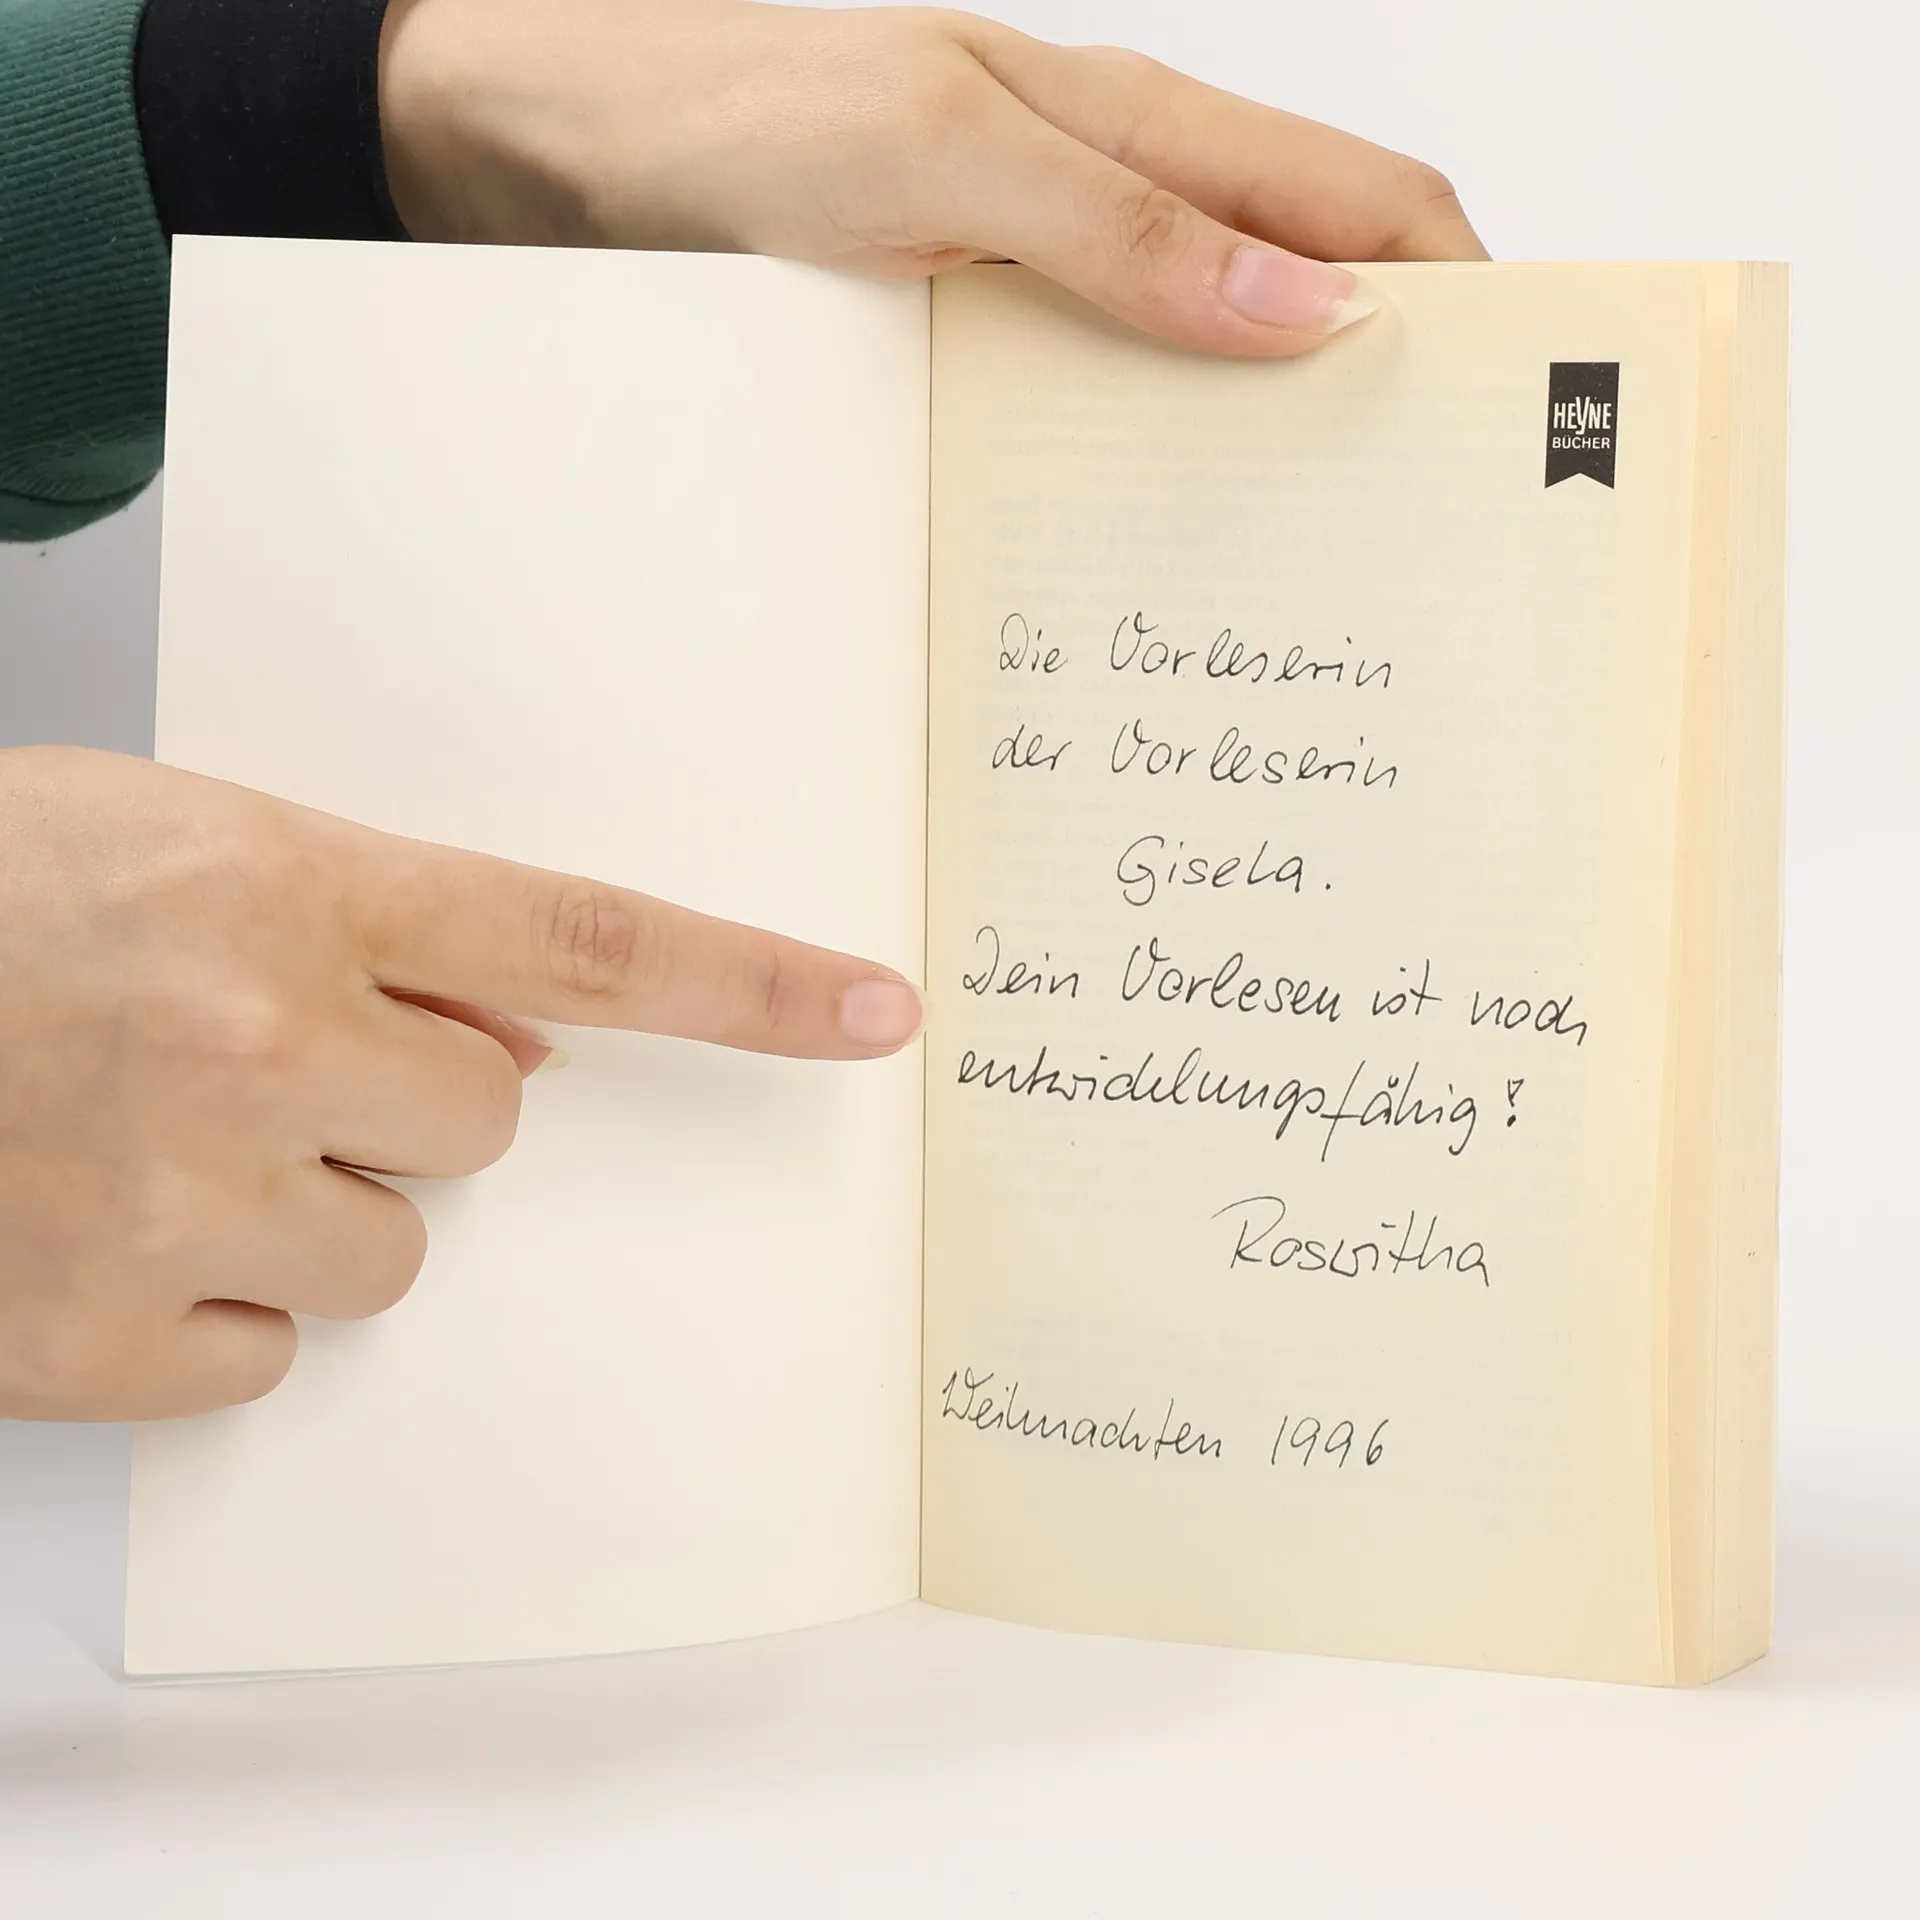 HEYNE
BÜCHER
Die Vorleserin
der Vorleserin
Gisela.
Dein Vorlesen ist noch
entwicklungsfähig!
Roswitha
Weihnachten 1996